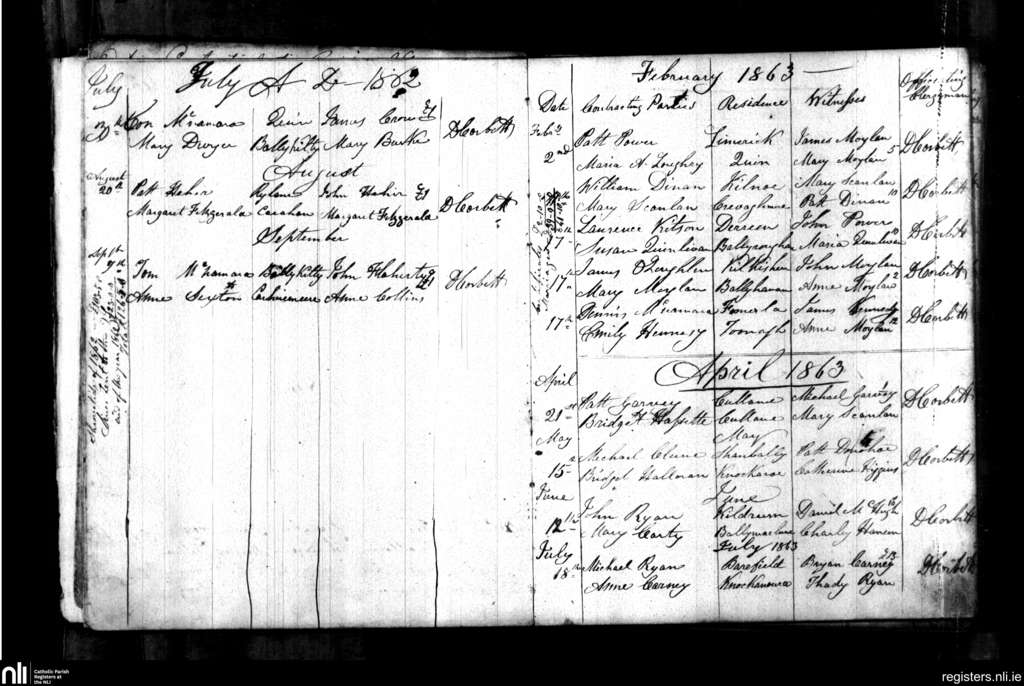 July A D 1862
July
30th Con McNamara Quin James Crowe £1 D Corbett
Mary Dwyer Ballykilty Mary Burke
August
August 20th Patt Hehir Rylane John Hehir £1 D Corbett
Margaret Fitzgerald Margaret Fitzgerald
September
Sept 7th Tom McNamara Ballykilty John Flaherty £1 D Corbett
Anne Sexton Anne Collins
February 1863
Date Contracting Parties Residence Witnesses Officiating Clergyman
Feb 2nd Patt Power Limerick James Moylan D Corbett
Maria A Loughry Quin Mary Moylan 5
William Dinan Kilnoe Mary Scanlan 10 D Corbett
Mary Scanlan Creevaghmore Patt Dinan
17 Laurence Kitson Derreen John Power 10 D Corbett
Susan Quinlivan Maria Quinlivan
17th James O'Loughlen Kilkishen John Moylan D Corbett
Mary Moylan Anne Moylan
17th Dennis McNamara James Kennedy 12 D Corbett
Emily Hennesy Toonagh Anne Moylan
April 1863
April
21 Patt Garvey Cullane Michael Garvey D Corbett
Bridget Hassette Cullane Mary Scanlan
May May
15 Michael Clune Shanbally Patt Donohoe D Corbett
Bridget Halloran Catherine Higgins
June June
12th John Ryan Kildrum Daniel McHugh D Corbett
Mary Carty Charley Hansen
July July 1863
18 Michael Ryan Barefield Bryan Carney D Corbett
Anne Carney Thady Ryan
nli Catholic Parish
Registers at
the NLI
registers.nli.ie